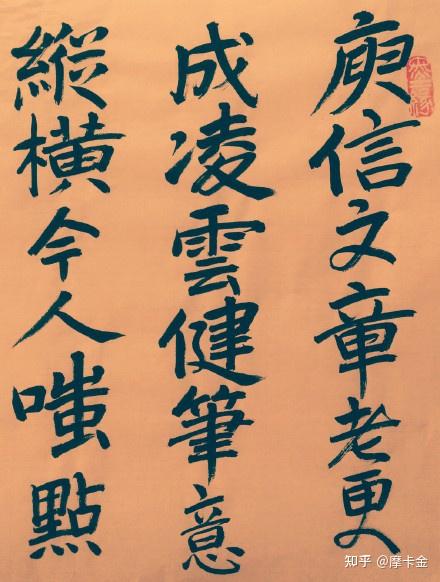 庾信文章老更
成凌雲健筆意
縱橫今人嗤點
知乎 @摩卡金